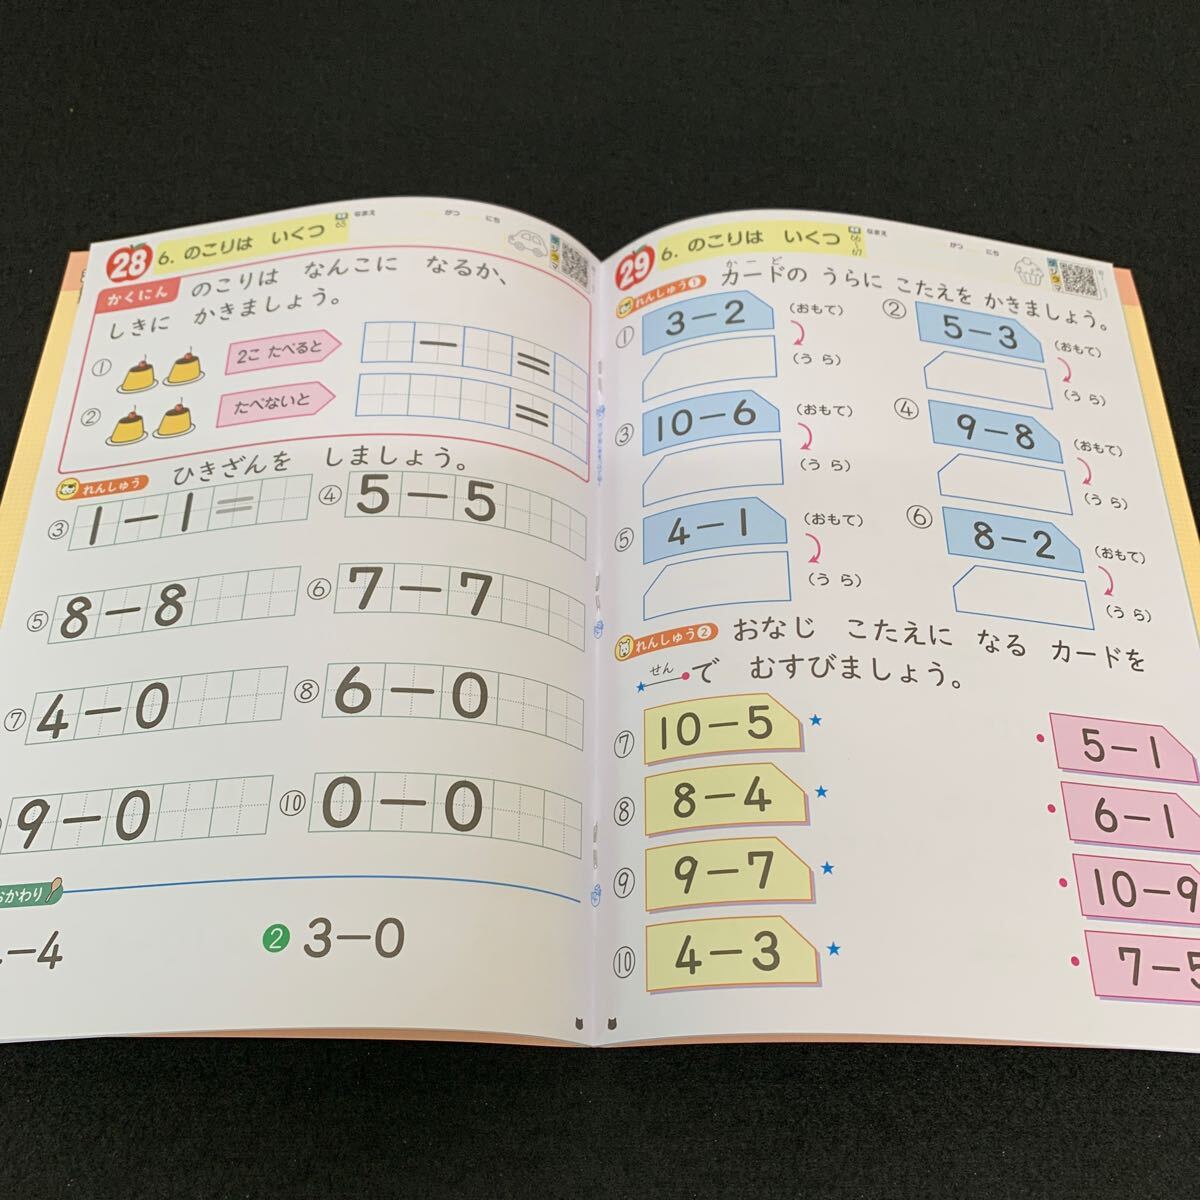 28
6. のこりは いくつ
65
なまえ
がつ
にち
かくにん
のこりは なんこに なるか、
しきに かきましょう。
①
2こ たべると
− =
②
たべないと
=
れんしゅう
ひきざんを しましょう。
③ 1−1=
④ 5−5
⑤ 8−8
⑥ 7−7
⑦ 4−0
⑧ 6−0
9−0
⑩ 0−0
おかわり
−4
❷ 3−0
29
6. のこりは いくつ
66
67
なまえ
がつ
にち
れんしゅう❶
かーど
カードの うらに こたえを かきましょう。
① 3−2
(おもて)
(うら)
② 5−3
(おもて)
(うら)
③ 10−6
(おもて)
(うら)
④ 9−8
(おもて)
(うら)
⑤ 4−1
(おもて)
(うら)
⑥ 8−2
(おもて)
(うら)
れんしゅう❷
おなじ こたえに なる カードを
せん
で むすびましょう。
⑦ 10−5
5−1
⑧ 8−4
6−1
⑨ 9−7
10−9
⑩ 4−3
7−5